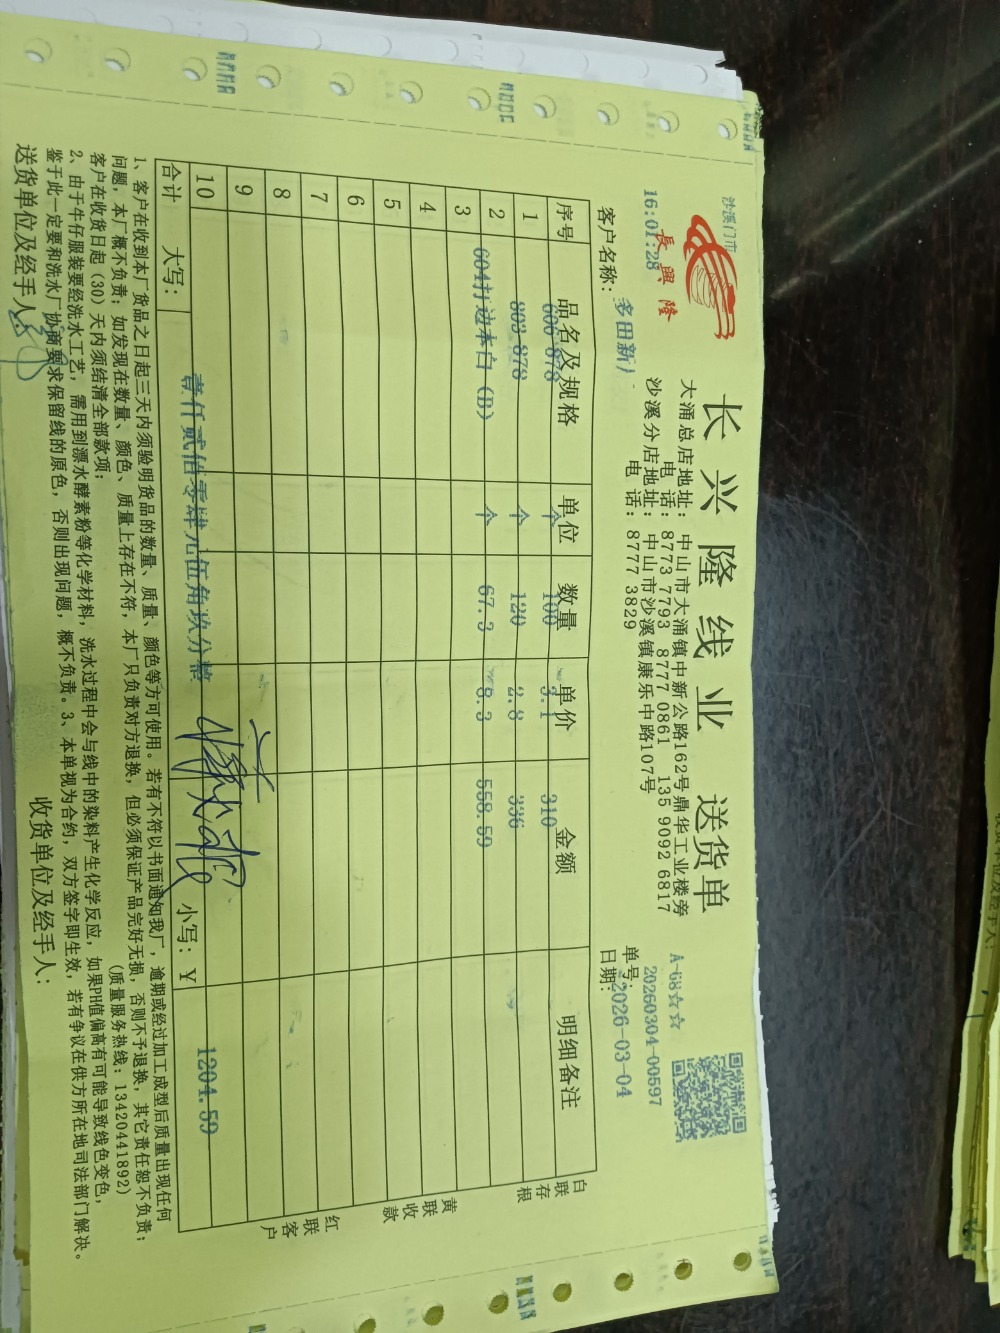 沙溪门市
16:01:28
長興隆
长兴隆线业 送货单
大涌总店地址：中山市大涌镇中新公路162号鼎华工业楼旁
电 话：8773 7793 8777 0861 135 9092 6817
沙溪分店地址：中山市沙溪镇康乐中路107号
电 话：8777 3829
A-68☆☆
单号：20260304-00597
日期：2026-03-04
客户名称：多田新厂
序号 品名及规格 单位 数量 单价 金额 明细备注
606 878 个 100 3.1 310
1 803 878 个 120 2.8 336
2 604打边本白（B） 个 67.3 8.3 558.59
3
4
5
6
7
8
9
10
合计 大写：壹仟贰佰零肆元伍角玖分整 小写：￥ 1204.59
白联存根
黄联收款
红联客户
1、客户在收到本厂货品之日起三天内须验明货品的数量、质量、颜色等方可使用。若有不符以书面通知我厂，逾期或经过加工成型后质量出现任何
问题，本厂概不负责；如发现在数量、颜色、质量上存在不符，本厂只负责对方退换，但必须保证产品完好无损，否则不予退换，其它责任恕不负责；
客户在收货日起（30）天内须结清全部款项；
（质量服务热线：13420441892）
2、由于牛仔服装要经洗水工艺，需用到漂水酵素粉等化学材料，洗水过程中会与线中的染料产生化学反应，如果PH值偏高有可能导致线色变色，
鉴于此一定要和洗水厂协商要求保留线的原色，否则出现问题，概不负责。3、本单视为合约，双方签字即生效，若有争议在供方所在地司法部门解决。
送货单位及经手人：
收货单位及经手人：